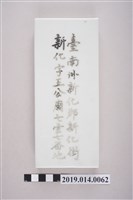 臺南州新化郡新化街
新化字王公廟七雲七番地
2019.014.0062